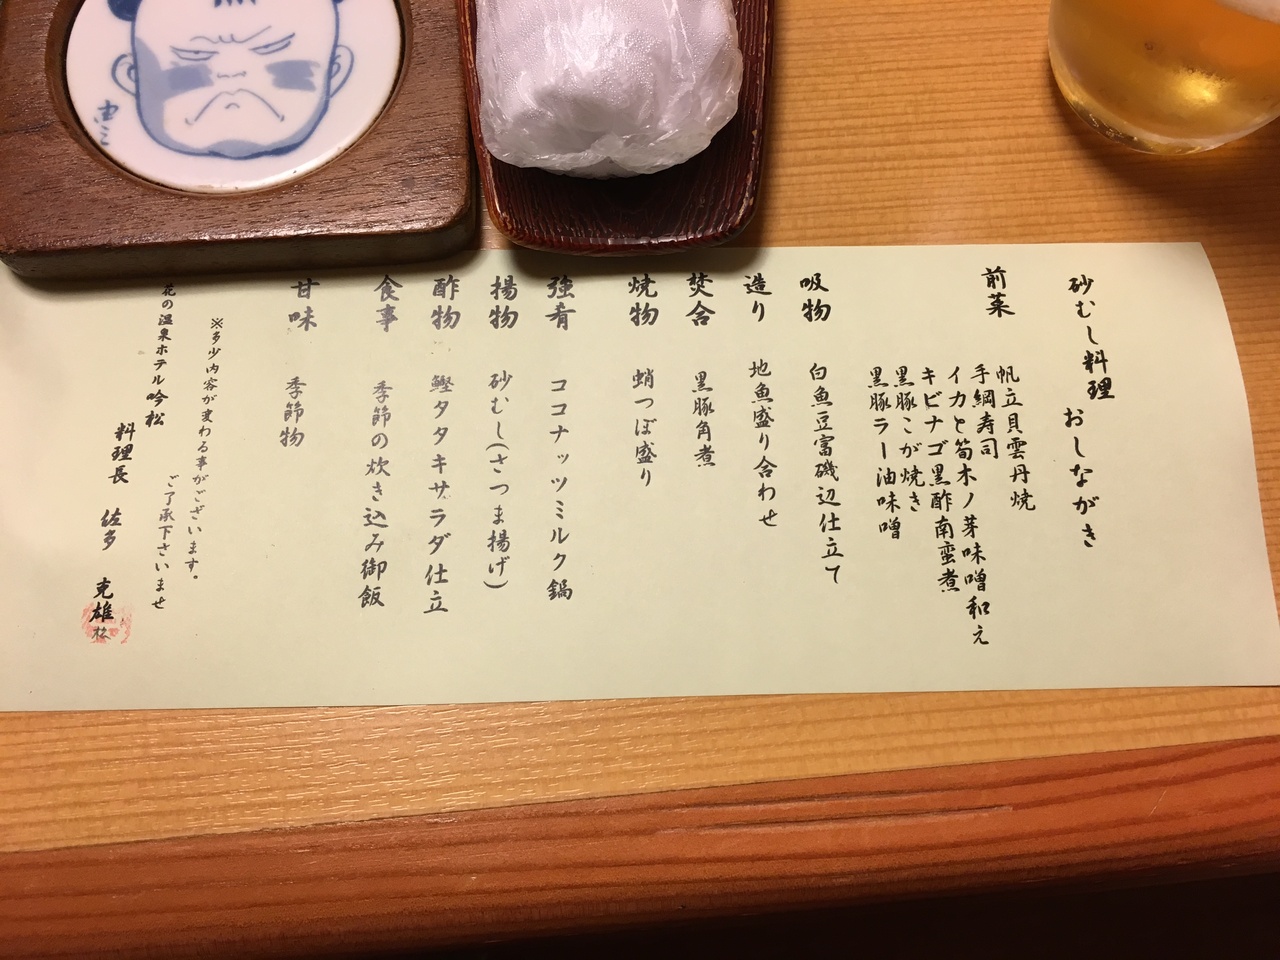 砂むし料理 おしながき
前菜
帆立貝雲丹焼
手綱寿司
イカと筍木ノ芽味噌和え
キビナゴ黒酢南蛮煮
黒豚こが焼き
黒豚ラー油味噌
吸物 白魚豆富磯辺仕立て
造り 地魚盛り合わせ
焚合 黒豚角煮
焼物 蛸つぼ盛り
強肴 ココナッツミルク鍋
揚物 砂むし(さつま揚げ)
酢物 鰹タタキサラダ仕立
食事 季節の炊き込み御飯
甘味 季節物
※多少内容が変わる事がございます。
ご了承下さいませ
花の温泉ホテル吟松
料理長 佐多 克雄